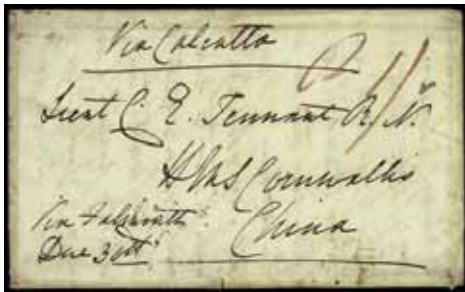 Via Calcutta
Lieut C. E. Tennant R.N.
HMS Cornwallis
China
Via Falmouth